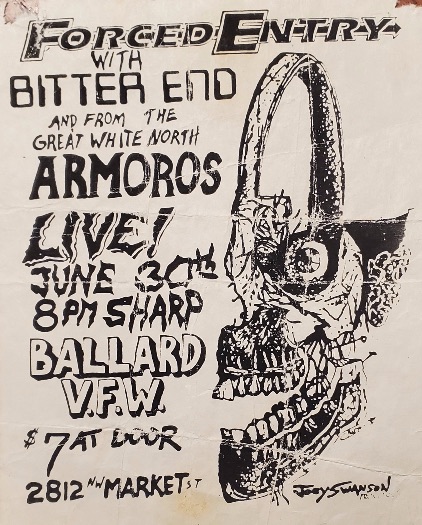 FORCED ENTRY
WITH
BITTER END
AND FROM THE
GREAT WHITE NORTH
ARMOROS
LIVE!
JUNE 30th
8PM SHARP
BALLARD
V.F.W.
$7 AT DOOR
2812 NW MARKET ST
JOEY SWANSON